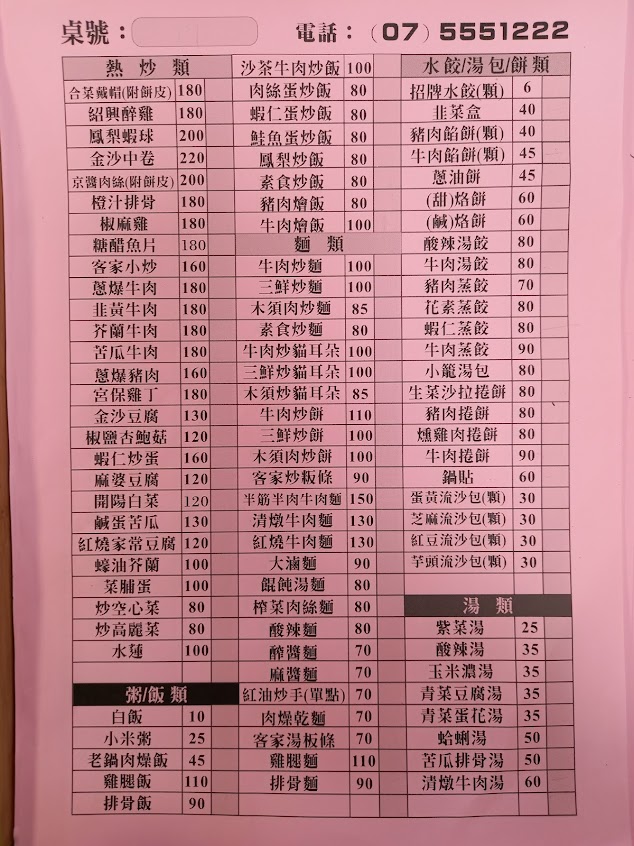 桌號： 電話：（07）5551222
熱炒類
合菜戴帽(附餅皮) 180
紹興醉雞 180
鳳梨蝦球 200
金沙中卷 220
京醬肉絲(附餅皮) 200
橙汁排骨 180
椒麻雞 180
糖醋魚片 180
客家小炒 160
蔥爆牛肉 180
韭黃牛肉 180
芥蘭牛肉 180
苦瓜牛肉 180
蔥爆豬肉 160
宮保雞丁 180
金沙豆腐 130
椒鹽杏鮑菇 120
蝦仁炒蛋 160
麻婆豆腐 120
開陽白菜 120
鹹蛋苦瓜 130
紅燒家常豆腐 120
蠔油芥蘭 100
菜脯蛋 100
炒空心菜 80
炒高麗菜 80
水蓮 100
粥/飯類
白飯 10
小米粥 25
老鍋肉燥飯 45
雞腿飯 110
排骨飯 90
沙茶牛肉炒飯 100
肉絲蛋炒飯 80
蝦仁蛋炒飯 80
鮭魚蛋炒飯 80
鳳梨炒飯 80
素食炒飯 80
豬肉燴飯 80
牛肉燴飯 100
麵類
牛肉炒麵 100
三鮮炒麵 100
木須肉炒麵 85
素食炒麵 80
牛肉炒貓耳朵 100
三鮮炒貓耳朵 100
木須炒貓耳朵 85
牛肉炒餅 110
三鮮炒餅 100
木須肉炒餅 100
客家炒粄條 90
半筋半肉牛肉麵 150
清燉牛肉麵 130
紅燒牛肉麵 130
大滷麵 90
餛飩湯麵 80
榨菜肉絲麵 80
酸辣麵 80
醡醬麵 70
麻醬麵 70
紅油炒手(單點) 70
肉燥乾麵 70
客家湯板條 70
雞腿麵 110
排骨麵 90
水餃/湯包/餅類
招牌水餃(顆) 6
韭菜盒 40
豬肉餡餅(顆) 40
牛肉餡餅(顆) 45
蔥油餅 45
(甜)烙餅 60
(鹹)烙餅 60
酸辣湯餃 80
牛肉湯餃 80
豬肉蒸餃 70
花素蒸餃 80
蝦仁蒸餃 80
牛肉蒸餃 90
小籠湯包 80
生菜沙拉捲餅 80
豬肉捲餅 80
燻雞肉捲餅 80
牛肉捲餅 90
鍋貼 60
蛋黃流沙包(顆) 30
芝麻流沙包(顆) 30
紅豆流沙包(顆) 30
芋頭流沙包(顆) 30
湯類
紫菜湯 25
酸辣湯 35
玉米濃湯 35
青菜豆腐湯 35
青菜蛋花湯 35
蛤蜊湯 50
苦瓜排骨湯 50
清燉牛肉湯 60